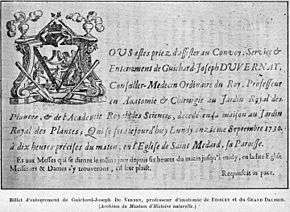 OUS estes priez d'assister au Convoy, Service &
Enterrement de Guichard-Joseph DUVERNAY,
Conseiller-Medecin Ordinaire du Roy, Professeur
en Anatomie & Chirurgie au Jardin Royal des
Plantes, & de l'Academie Royale des Sciences, decedé en sa maison au Jardin
Royal des Plantes; Qui se fera aujourd'huy Lundy onziéme Septembre 1730,
à dix heures précises du matin, en l'Eglise de Saint Medard, sa Paroisse.
Et aux Messes qui se diront le mesme jour depuis six heures du matin jusqu'à midy, en ladite Eglise
Messieurs & Dames s'y trouveront, s'il leur plaist.
Requiescat in pace.
Billet d'enterrement de Guichard-Joseph Du Verney, professeur d'anatomie de Bossuet et du Grand Dauphin.
(Archives du Muséum d'Histoire naturelle.)